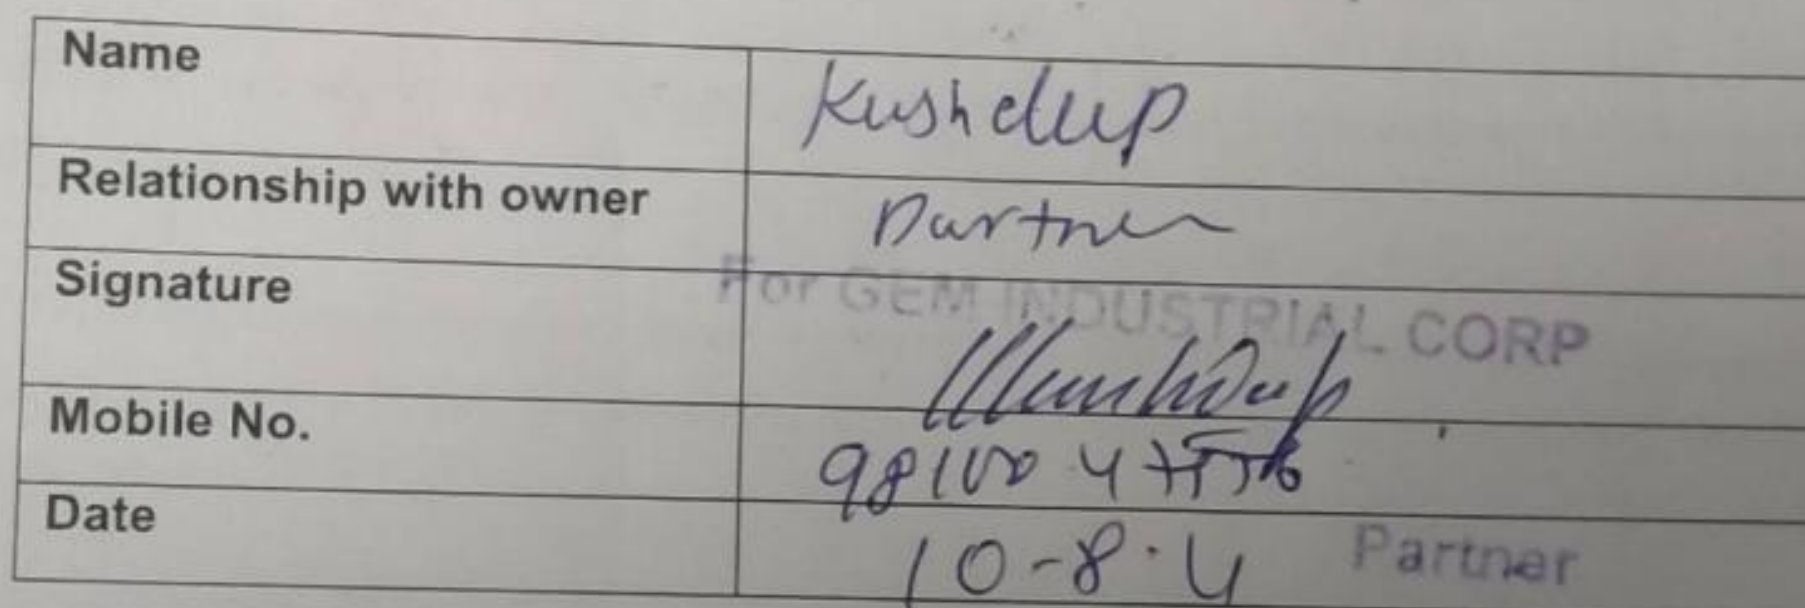 Name Kushdup
Relationship with owner Partner
Signature For GEM INDUSTRIAL CORP
Mobile No. 98100 4
Date 10-8-4 Partner